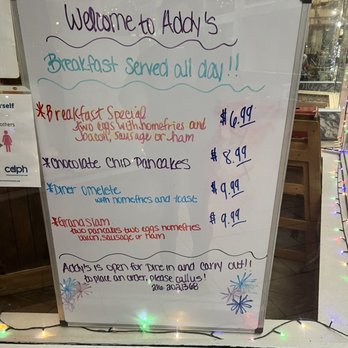 Welcome to Addy's
Breakfast served all day!!
*Breakfast Special $6.99
two eggs with homefries and
bacon, sausage or ham
*Chocolate Chip Pancakes $8.99
*Diner Omelete $9.99
with homefries and toast
*Grandslam $9.99
two pancakes two eggs homefries
bacon, sausage or ham
Addy's is open for Dine in and carry out!!
to place an order, please call us!
yourself
others
cdph